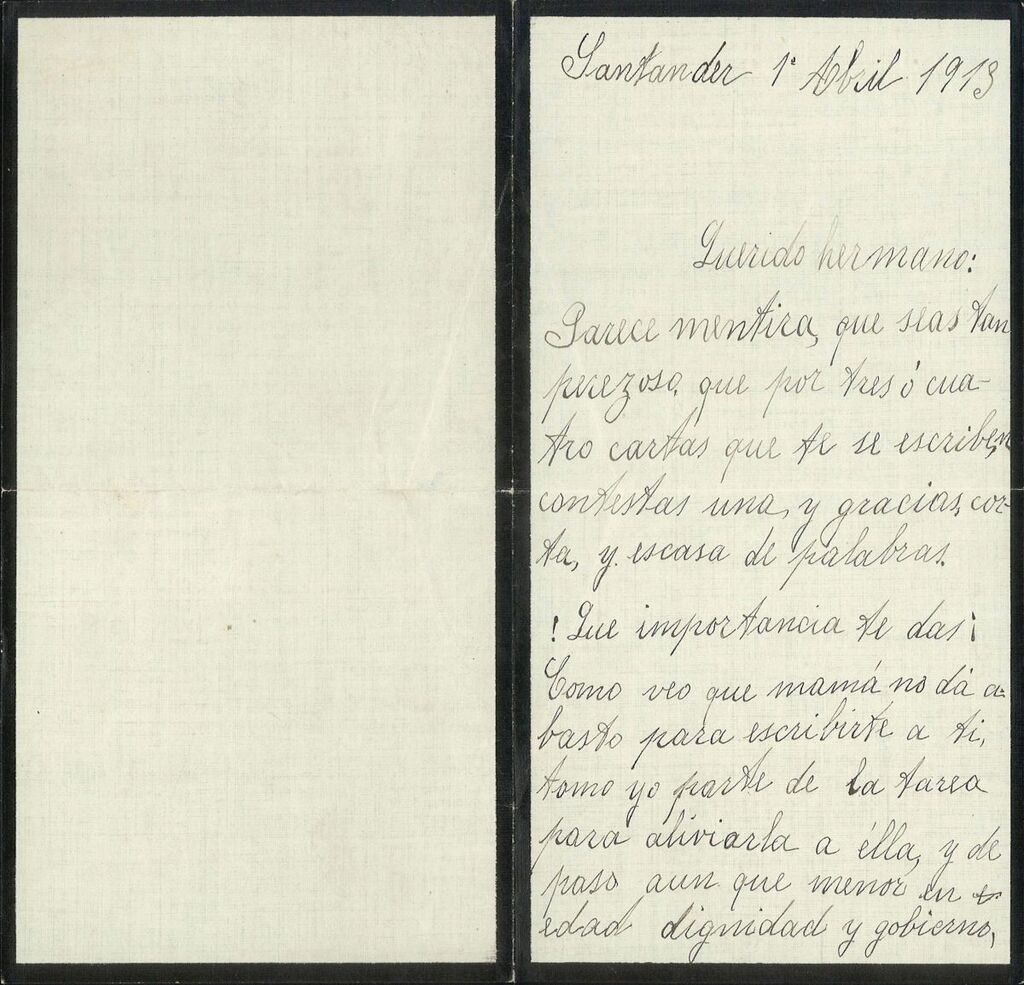 Santander 1º Abril 1913
Querido hermano:
Parece mentira, que seas tan
perezoso, que por tres ó cua-
tro cartas que te se escriben,
contestas una, y gracias, cor-
ta, y escasa de palabras.
! Que importancia te das ¡
Como veo que mamá no dá a-
basto para escribirte a ti,
tomo yo parte de la tarea
para aliviarla a élla, y de
paso aun que menor en e
edad dignidad y gobierno,